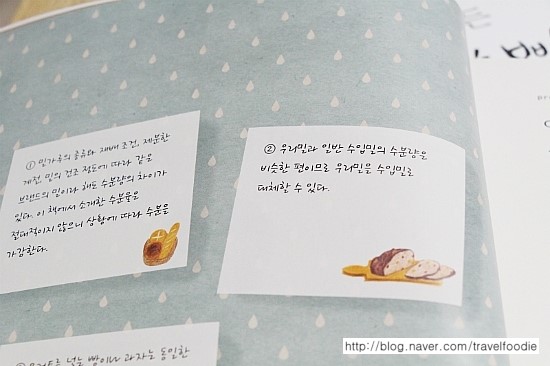 ① 밀가루의 종류와 재배 조건, 제분한
계절, 밀의 건조 정도에 따라 같은
브랜드의 밀이라 해도 수분량의 차이가
있다. 이 책에서 소개한 수분율은
절대적이지 않으니 상황에 따라 수분을
가감한다.
② 우리밀과 일반 수입밀의 수분량은
비슷한 편이므로 우리밀을 수입밀로
대체할 수 있다.
넣는 빵이나 과자는 동일한
http://blog.naver.com/travelfoodie